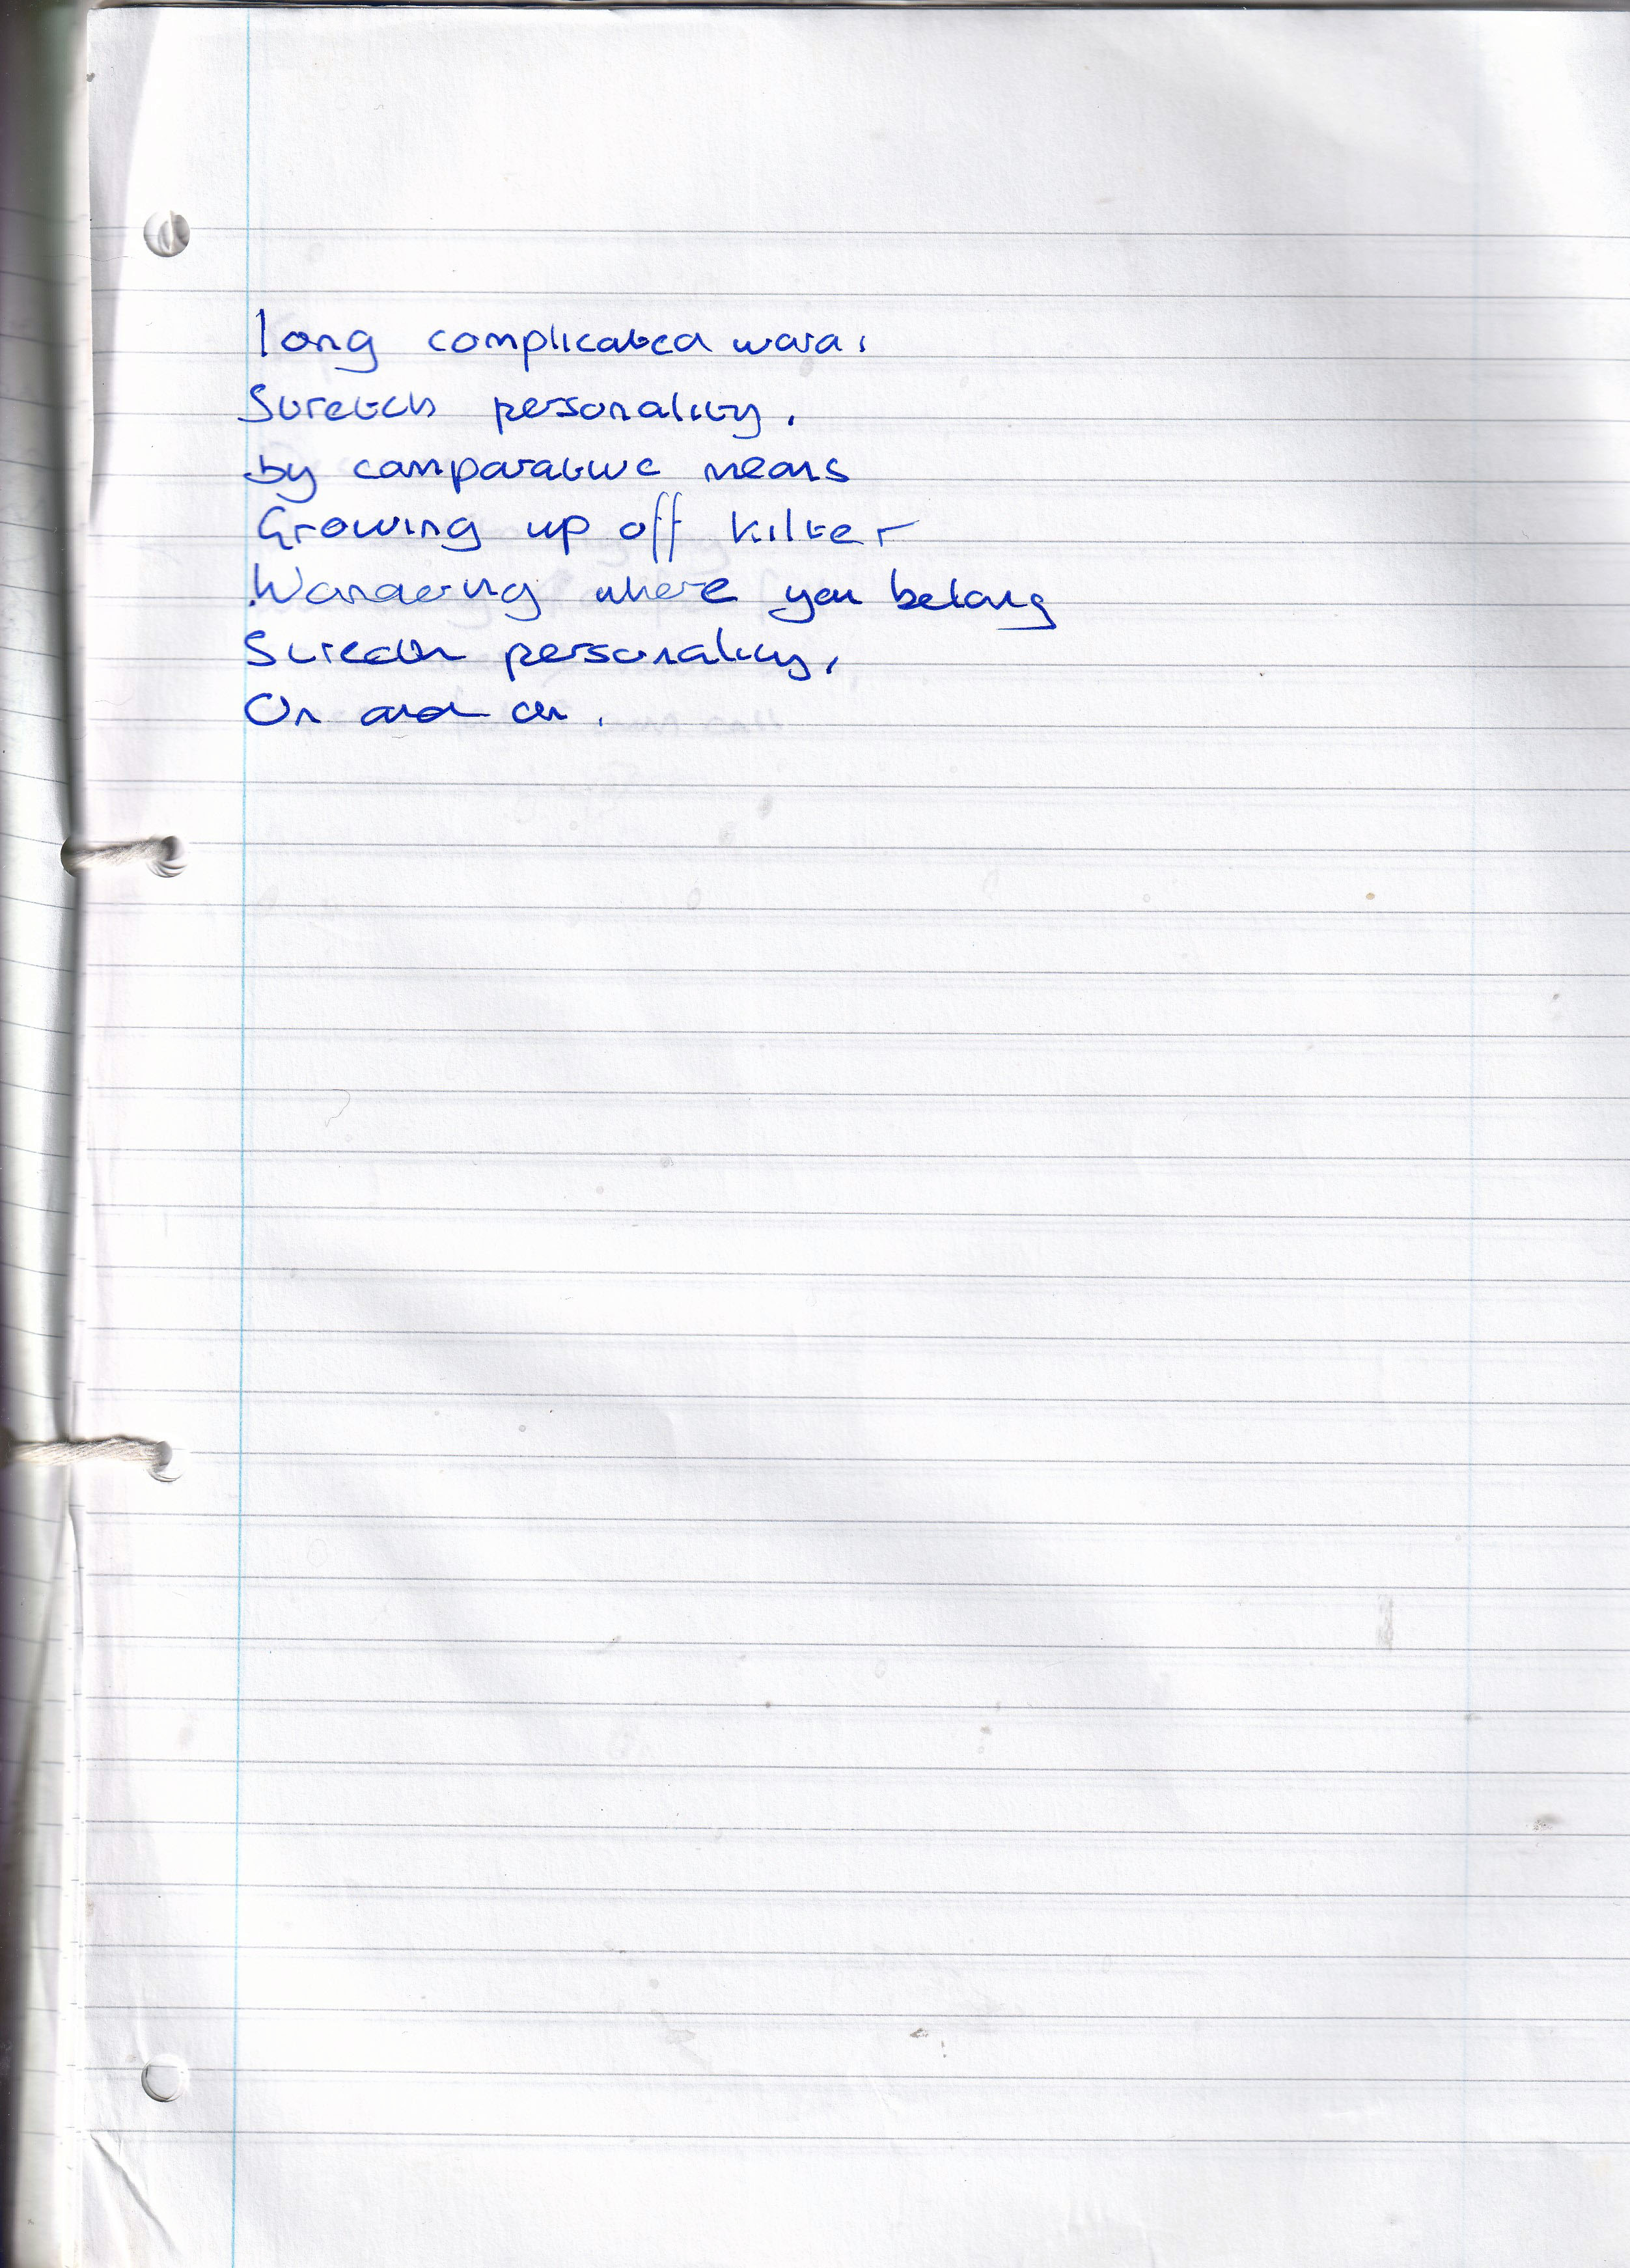 long complicated word.
Stretch personality.
by comparative means
Growing up off kilter
Wondering where you belong
Stretch personality,
On and on.